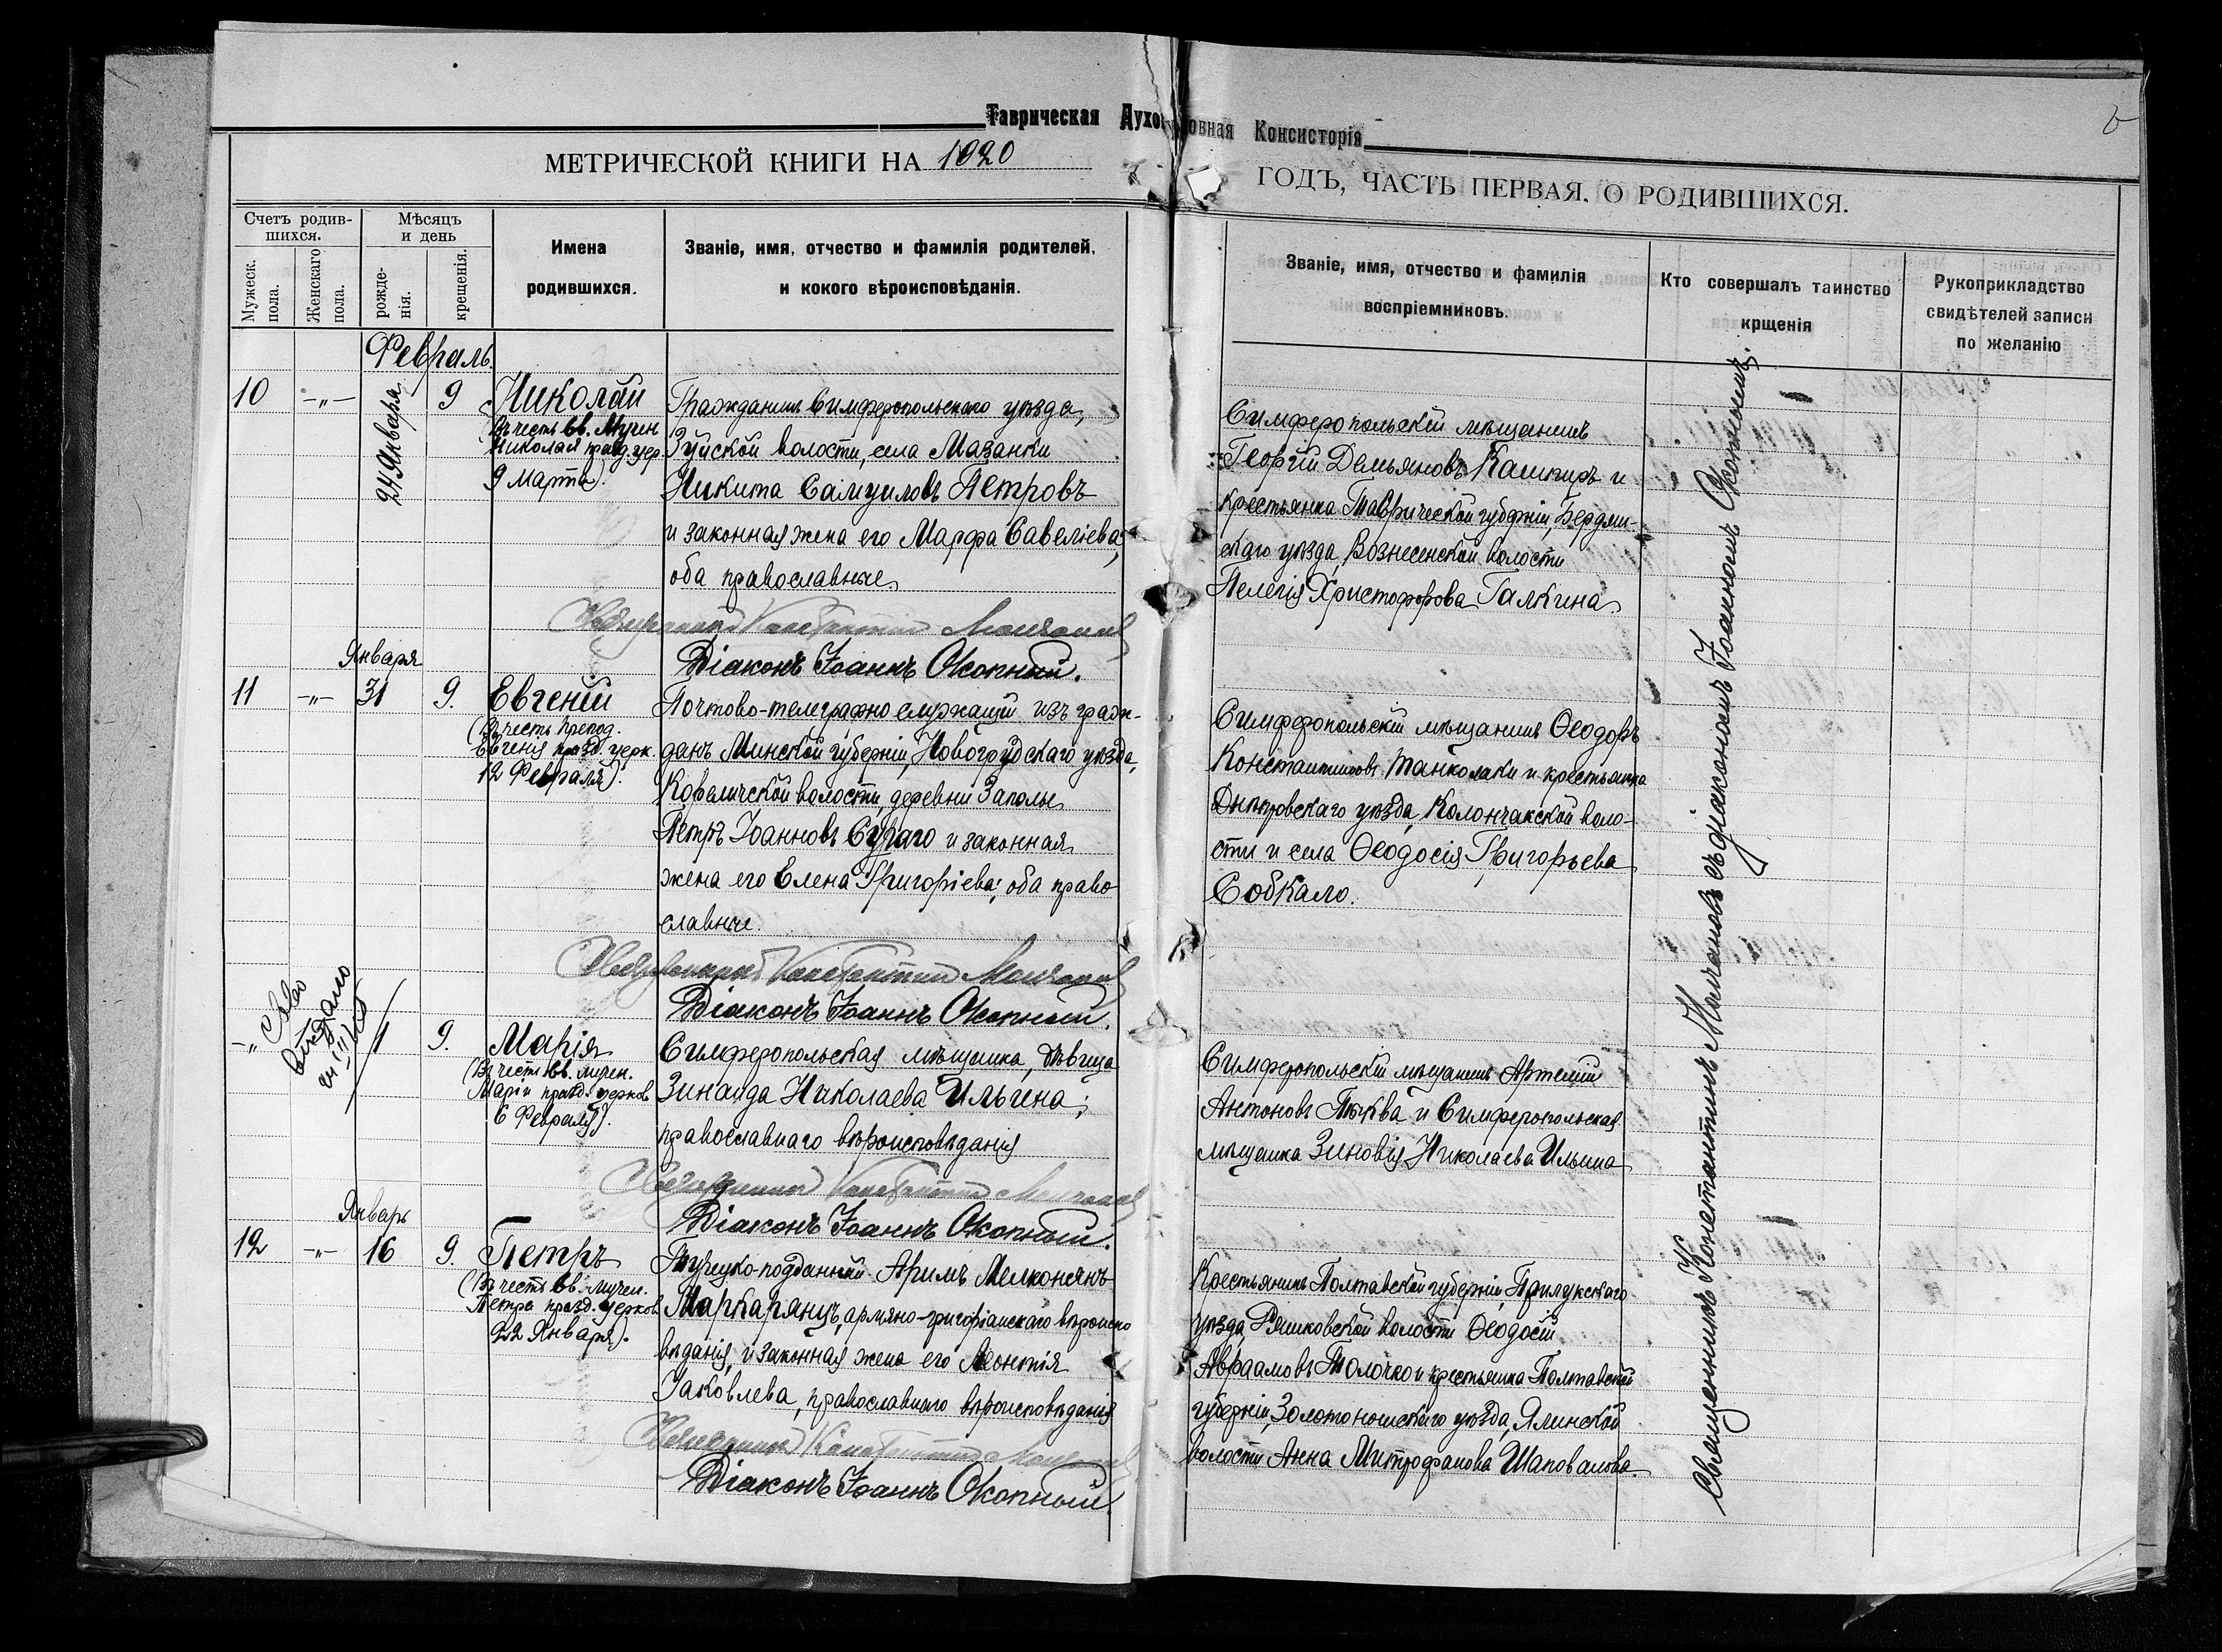 Таврическая Духовная Консисторія
МЕТРИЧЕСКОЙ КНИГИ НА 1920
ГОДЪ, ЧАСТЬ ПЕРВАЯ. О РОДИВШИХСЯ.
Счетъ родив-
шихся.
Мужеск.
пола.
Женскаго
пола.
Мѣсяцъ
и день
рожде-
нія.
крещенія.
Имена
родившихся.
Званіе, имя, отчество и фамилія родителей,
и кокого вѣроисповѣданія.
Званіе, имя, отчество и фамилія
воспріемниковъ.
Кто совершалъ таинство
крщенія
Рукоприкладство
свидѣтелей записи
по желанію
Февраль.
10 -„- 24 Января 9
Николай
(Въ честь Св. Мучен
Николая празд. цер.
9 Марта).
Гражданинъ Симферопольскаго уѣзда,
Зуйской волости, села Мазанки
Никита Самуиловъ Петровъ
и законная жена его Марфа Савеліева;
оба православные.
Священникъ Константинъ Молчановъ
Діаконъ Іоаннъ Окопный.
Симферопольскій мѣщанинъ
Георгій Демьяновъ Кашкиръ и
крестьянка Таврической губерніи, Бердян-
скаго уѣзда, Вознесенской волости
Пелагія Христофорова Галкина.
Января
11 -„- 31 9.
Евгеній
(Въ честь препод.
Евгенія празд. церк.
12 Февраля).
Почтово-телеграфно служащій изъ граж-
данъ Минской губерніи, Новогрудскаго уѣзда,
деревни Заполье
Петръ Іоанновъ Сураго и законная
жена его Елена Григоріева; оба право
славные.
Священникъ Константинъ Молчановъ
Діаконъ Іоаннъ Окопный.
Симферопольскій мѣщанинъ Ѳеодоръ
Константиновъ Танколаки и крестьянка
Днѣпровскаго уѣзда, Колончакской воло-
сти и села Ѳеодосія Григорьева
Собкало.
-„ 1 1 9.
выдано
Марія
(Въ честь Св. мучен.
Маріи празд. церков
6 Февраля).
Симферопольская мѣщанка, дѣвица
Зинаида Николаева Ильина;
православнаго вѣроисповѣданія
Священникъ Константинъ Молчановъ
Діаконъ Іоаннъ Окопный.
Симферопольскій мѣщанинъ Артемій
Антоновъ Тыква и Симферопольская
мѣщанка Зиновія Николаева Ильина
Январь
12 -„- 16 9.
Петръ
(Въ честь Св. мучен.
Петра празд. церков
22 Января).
Турецко-подданный Аримъ Мелконянъ
Маркарянцъ, армяно-григоріанскаго вѣроиспо
вѣданія, и законная жена его Леонтія
Іаковлева, православнаго вѣроисповѣданія
Священникъ Константинъ Молчановъ
Діаконъ Іоаннъ Окопный.
Крестьянинъ Полтавской губерніи, Прилукскаго
уѣзда Ряшковской волости Ѳеодосій
Авраамовъ Толочко и крестьянка Полтавской
губерніи, Золотоношскаго уѣзда, волости Анна Митрофанова Шаповалова.
Священникъ Константинъ Молчановъ съ діакономъ Іоанномъ Окопнымъ.